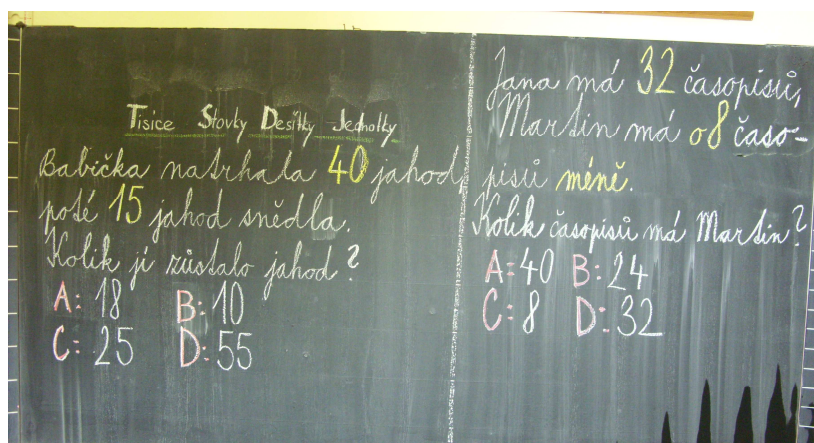 Tisíce Stovky Desítky Jednotky
Babička natrhala 40 jahod,
poté 15 jahod snědla.
Kolik jí zůstalo jahod?
A: 18 B: 10
C: 25 D: 55
Jana má 32 časopisů,
Martin má o 8 časo-
pisů méně.
Kolik časopisů má Martin?
A: 40 B: 24
C: 8 D: 32